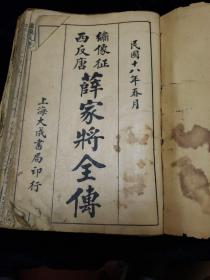 民國十八年春月
繡像征
西反唐
薛家將全傳
上海大成書局印行